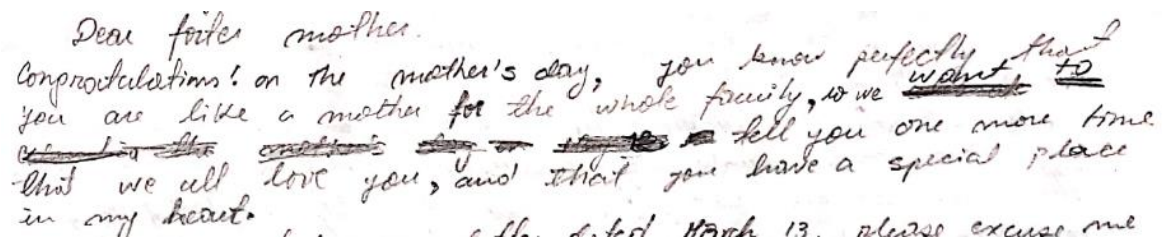 Dear foster mother.
Congratulations! on the mother's day, you know perfectly that
you are like a mother for the whole family, so we want to
tell you one more time
that we all love you, and that you have a special place
in my heart.
dated March 13, please excuse me